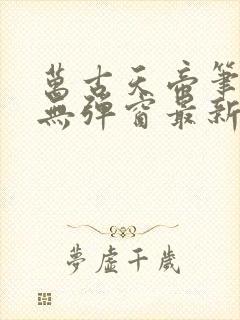 萬古天帝筆
無彈窗最新
夢虛千歲